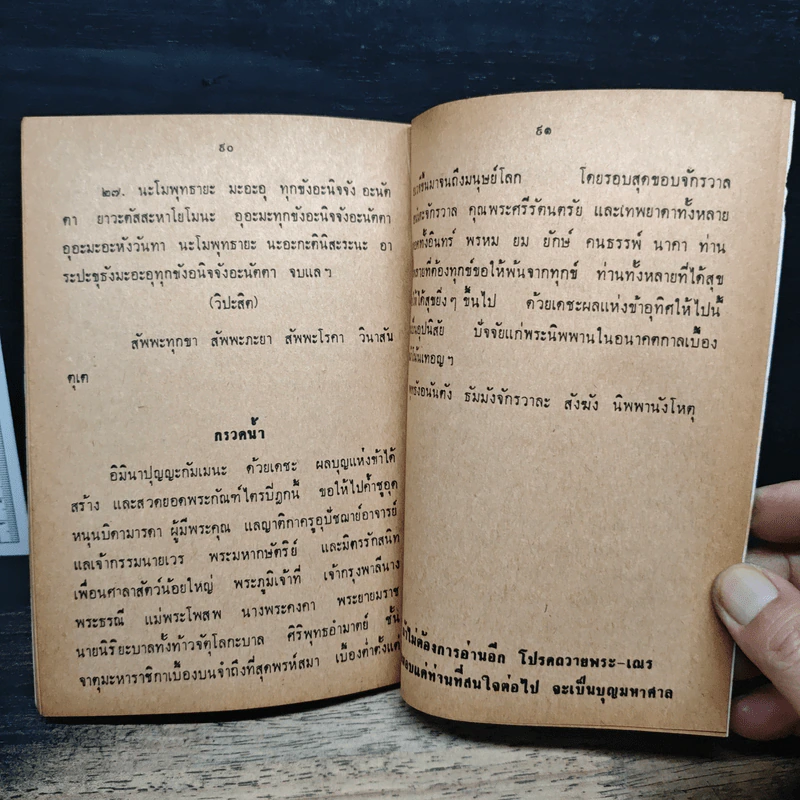 ๙๐
๒๗. นะโมพุทธายะ มะอะอุ ทุกขังอะนิจจัง อะนัต
ตา ยาวะตัสสะหาโยโมนะ อุอะมะทุกขังอะนิจจังอะนัตตา
อุอะมะอะหังวันทา นะโมพุทธายะ นะอะกะตินิสะระนะ อา
ระปะขุธังมะอะอุทุกขังอนิจจังอะนัตตา จบแลฯ
(วิปะสิต)
สัพพะทุกขา สัพพะภะยา สัพพะโรคา วินาสัน
ตุเต
กรวดน้ำ
อิมินาปุญญะกัมเมนะ ด้วยเดชะ ผลบุญแห่งข้าได้
สร้าง และสวดยอดพระกัณฑ์ไตรปิฎกนี้ ขอให้ไปค้ำชูอุด
หนุนบิดามารดา ผู้มีพระคุณ แลญาติกาครูอุปัชฌาย์อาจารย์
แลเจ้ากรรมนายเวร พระมหากษัตริย์ และมิตรรักสนิท
เพื่อนศาลาสัตว์น้อยใหญ่ พระภูมิเจ้าที่ เจ้ากรุงพาลีนาง
พระธรณี แม่พระโพสพ นางพระคงคา พระยายมราช
นายนิริยะบาลทั้งท้าวจัตุโลกะบาล ศิริพุทธอำมาตย์ ชั้น
จาตุมะหาราชิกาเบื้องบนจำถึงที่สุดพรห์สมา เบื้องต่ำตั้งแต่
๙๑
ขึ้นมาจนถึงมนุษย์โลก โดยรอบสุดขอบจักรวาล
จักรวาล คุณพระศรีรัตนตรัย และเทพยาดาทั้งหลาย
ทั้งอินทร์ พรหม ยม ยักษ์ คนธรรพ์ นาคา ท่าน
หลายที่ต้องทุกข์ขอให้พ้นจากทุกข์ ท่านทั้งหลายที่ได้สุข
ได้สุขยิ่งๆ ขึ้นไป ด้วยเดชะผลแห่งข้าอุทิศให้ไปนี้
อุปนิสัย ปัจจัยแก่พระนิพพานในอนาคตกาลเบื้อง
นั้นเทอญฯ
อนันตัง ธัมมังจักรวาละ สังฆัง นิพพานังโหตุ
ไม่ต้องการอ่านอีก โปรดถวายพระ-เณร
มอบแด่ท่านที่สนใจต่อไป จะเป็นบุญมหาศาล